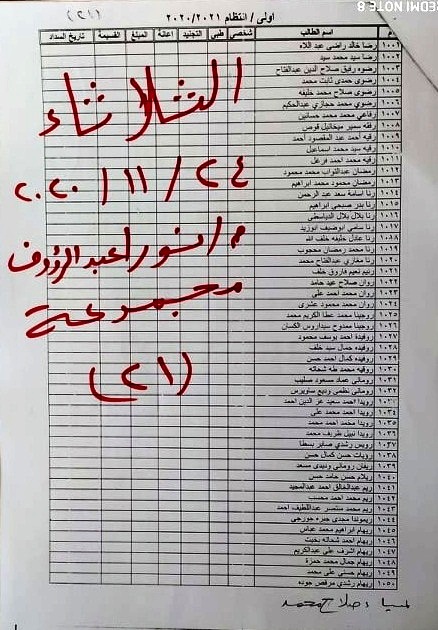 (٢١)
REDMI NOTE 8
اولى / انتظام / ٢٠٢٠/٢٠٢١
م اسم الطالب شخصي طبي التجنيد اعانة المبلغ القسيمة تاريخ السداد
١٠٠١ رضا خالد راضى عبد اللاه
١٠٠٢ رضا سيد محمد سيد
١٠٠٣ رضوه رفيق صلاح الدين عبدالفتاح
١٠٠٤ رضوى حمدى ثابت محمد
١٠٠٥ رضوى صلاح محمد خليفه
١٠٠٦ رضوي محمد حجازي عبدالحكيم
١٠٠٧ رفاعي محمد محمد حسانين
١٠٠٨ رفقه سمير ميخائيل قوص
١٠٠٩ رقيه أحمد عبد المقصود أحمد
١٠١٠ رقيه سيد محمد اسماعيل
١٠١١ رقيه محمد احمد فرغل
١٠١٢ رمضان عبدالتواب محمد محمود
١٠١٣ رمضان محمود محمد ابراهيم
١٠١٤ رنا اسامة سعد عبد الرحمن
١٠١٥ رنا بدر صبحي ابراهيم
١٠١٦ رنا بلال بلال الدياسطي
١٠١٧ رنا سامي ابوضيف ابوزيد
١٠١٨ رنا عادل خليفه خلف الله
١٠١٩ رنا محمد رمضان محجوب
١٠٢٠ رنا مغازي عبدالفتاح محمد
١٠٢١ رنيم نعيم فاروق خلف
١٠٢٢ روان صلاح عيد حامد
١٠٢٣ روان محمد أحمد علي
١٠٢٤ روان محمد محمود عشرى
١٠٢٥ روجينا محمد عطا الكريم محمد
١٠٢٦ روجينا ممدوح سيداروس الكسان
١٠٢٧ روفيدة احمد يوسف محمود
١٠٢٨ روفيده جمال سيد خلف
١٠٢٩ روفيده كمال احمد حسن
١٠٣٠ روفيه محمد طه شحاته
١٠٣١ رومانى عماد مسعود صليب
١٠٣٢ رومانى نظمى وديع ساويرس
١٠٣٣ رويدا احمد سعيد عز الدين احمد
١٠٣٤ رويدا احمد محمد على
١٠٣٥ رويدا محمد احمد محمد
١٠٣٦ رويدا نبيل ظريف محمد
١٠٣٧ رويس رشدي صابر بسطا
١٠٣٨ رؤيات حسن كمال حسن
١٠٣٩ ريفان رومانى وديدى مسعد
١٠٤٠ ريلام حسن حامد حسن
١٠٤١ ريم عبدالخالق احمد عبدالمجيد
١٠٤٢ ريم محمد احمد محسب
١٠٤٣ ريم محمد منتصر عبداللطيف احمد
١٠٤٤ ريموندا مجدى جبره جورجى
١٠٤٥ ريهام ابراهيم محمد عباس
١٠٤٦ ريهام احمد شحاته بخيت
١٠٤٧ ريهام اشرف علي عبدالكريم
١٠٤٨ ريهام جمال محمد حمزة
١٠٤٩ ريهام حسني على محمد
١٠٥٠ ريهام رشدي مرقص جوده
الثلاثاء
٢٤ / ١١ / ٢٠٢٠
م / نورا عبد الرؤوف
مجموعة
(٢١)
لمياء صلاح محمد